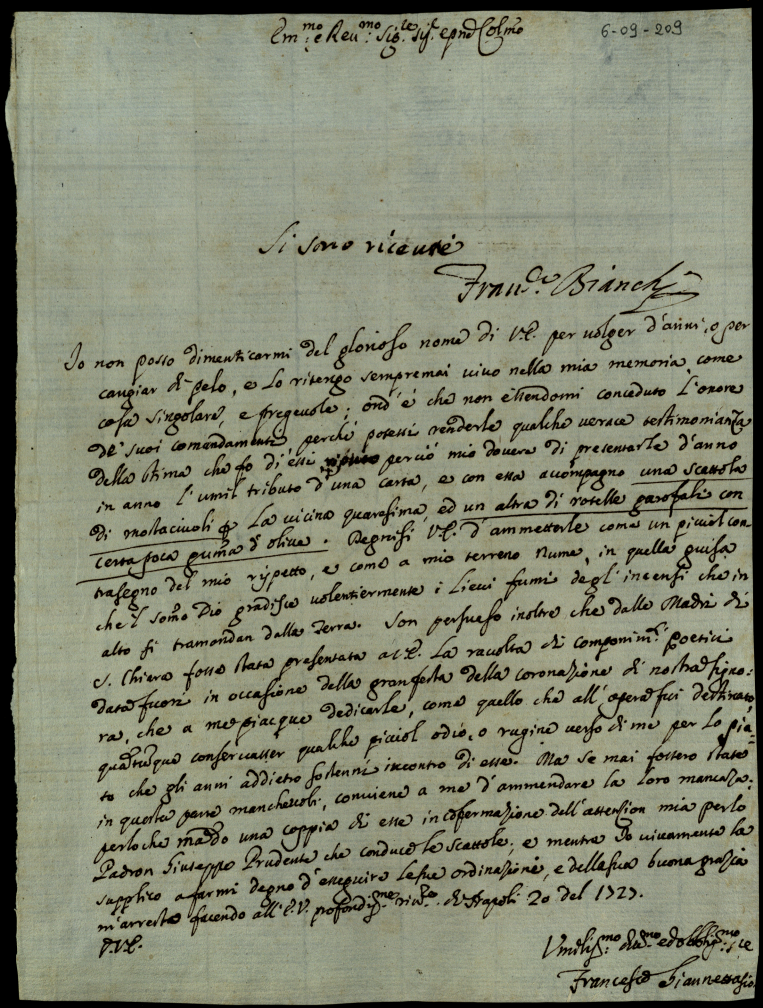 Em.mo e Rev.mo Sig.re Sig.r e pnd Colmo
6-09-209
Si sono riceute
Fran.co Bianchi
Io non posso dimenticarmi del glorioso nome di V.E. per volger d'anni, o per
cangiar di pelo, e lo ritengo sempremai vivo nella mia memoria come
cosa singolare, e pregevole; ond'è che non essendomi conceduto l'onore
de' suoi comandamenti perché potessi renderle qualche verace testimonianza
della stima che fo di essi perciò mio dovere di presentarle d'anno
in anno l'umil tributo d'una carta, e con essa accompagno una scattola
di mostacciuoli p la vicina quaresima, ed un altra di rotelle garofali con
certa poca d'olive. Degnisi V.E. d'ammetterle come un picciol con
trasegno del mio rispetto, e come a mio terreno Nume, in quella guisa
che 'l somo Dio gradisce volentiermente i lievi fumi degl'incensi che in
alto si tramandan dalla terra. Son persuaso inoltre che dalle Madri di
S. Chiara fosse stata presentata a V.E. la racolta di componim.ti poetici
data fuori in occasione della gran festa della coronazione di nostra Signo:
ra, che a me piacque dedicarle, come quello che all'opera fui destinato
quãtũque conservasser qualche picciol odio, o rugine verso di me per lo pia=
to che gli anni addietro sostenni incontro di esse. Ma se mai fossero state
in questa parte manchevoli, conviene a me d'ammendare la loro mancãza.
perloche mãdo una coppia di esse in cõfermazione dell'attension mia per lo
Padron Giuseppe Prudente che conduce le scattole; e mentre Io vivamente la
supplico a farmi degno d'eseguire le sue ordinazioni, e della sua buona grazia
m'arresto facendo all'E.V. profondis.me river.e di Napoli 20 del 1727.
V.E.
Umilis.mo div.mo ed obblig.mo s.re
Francesco Giannettasio